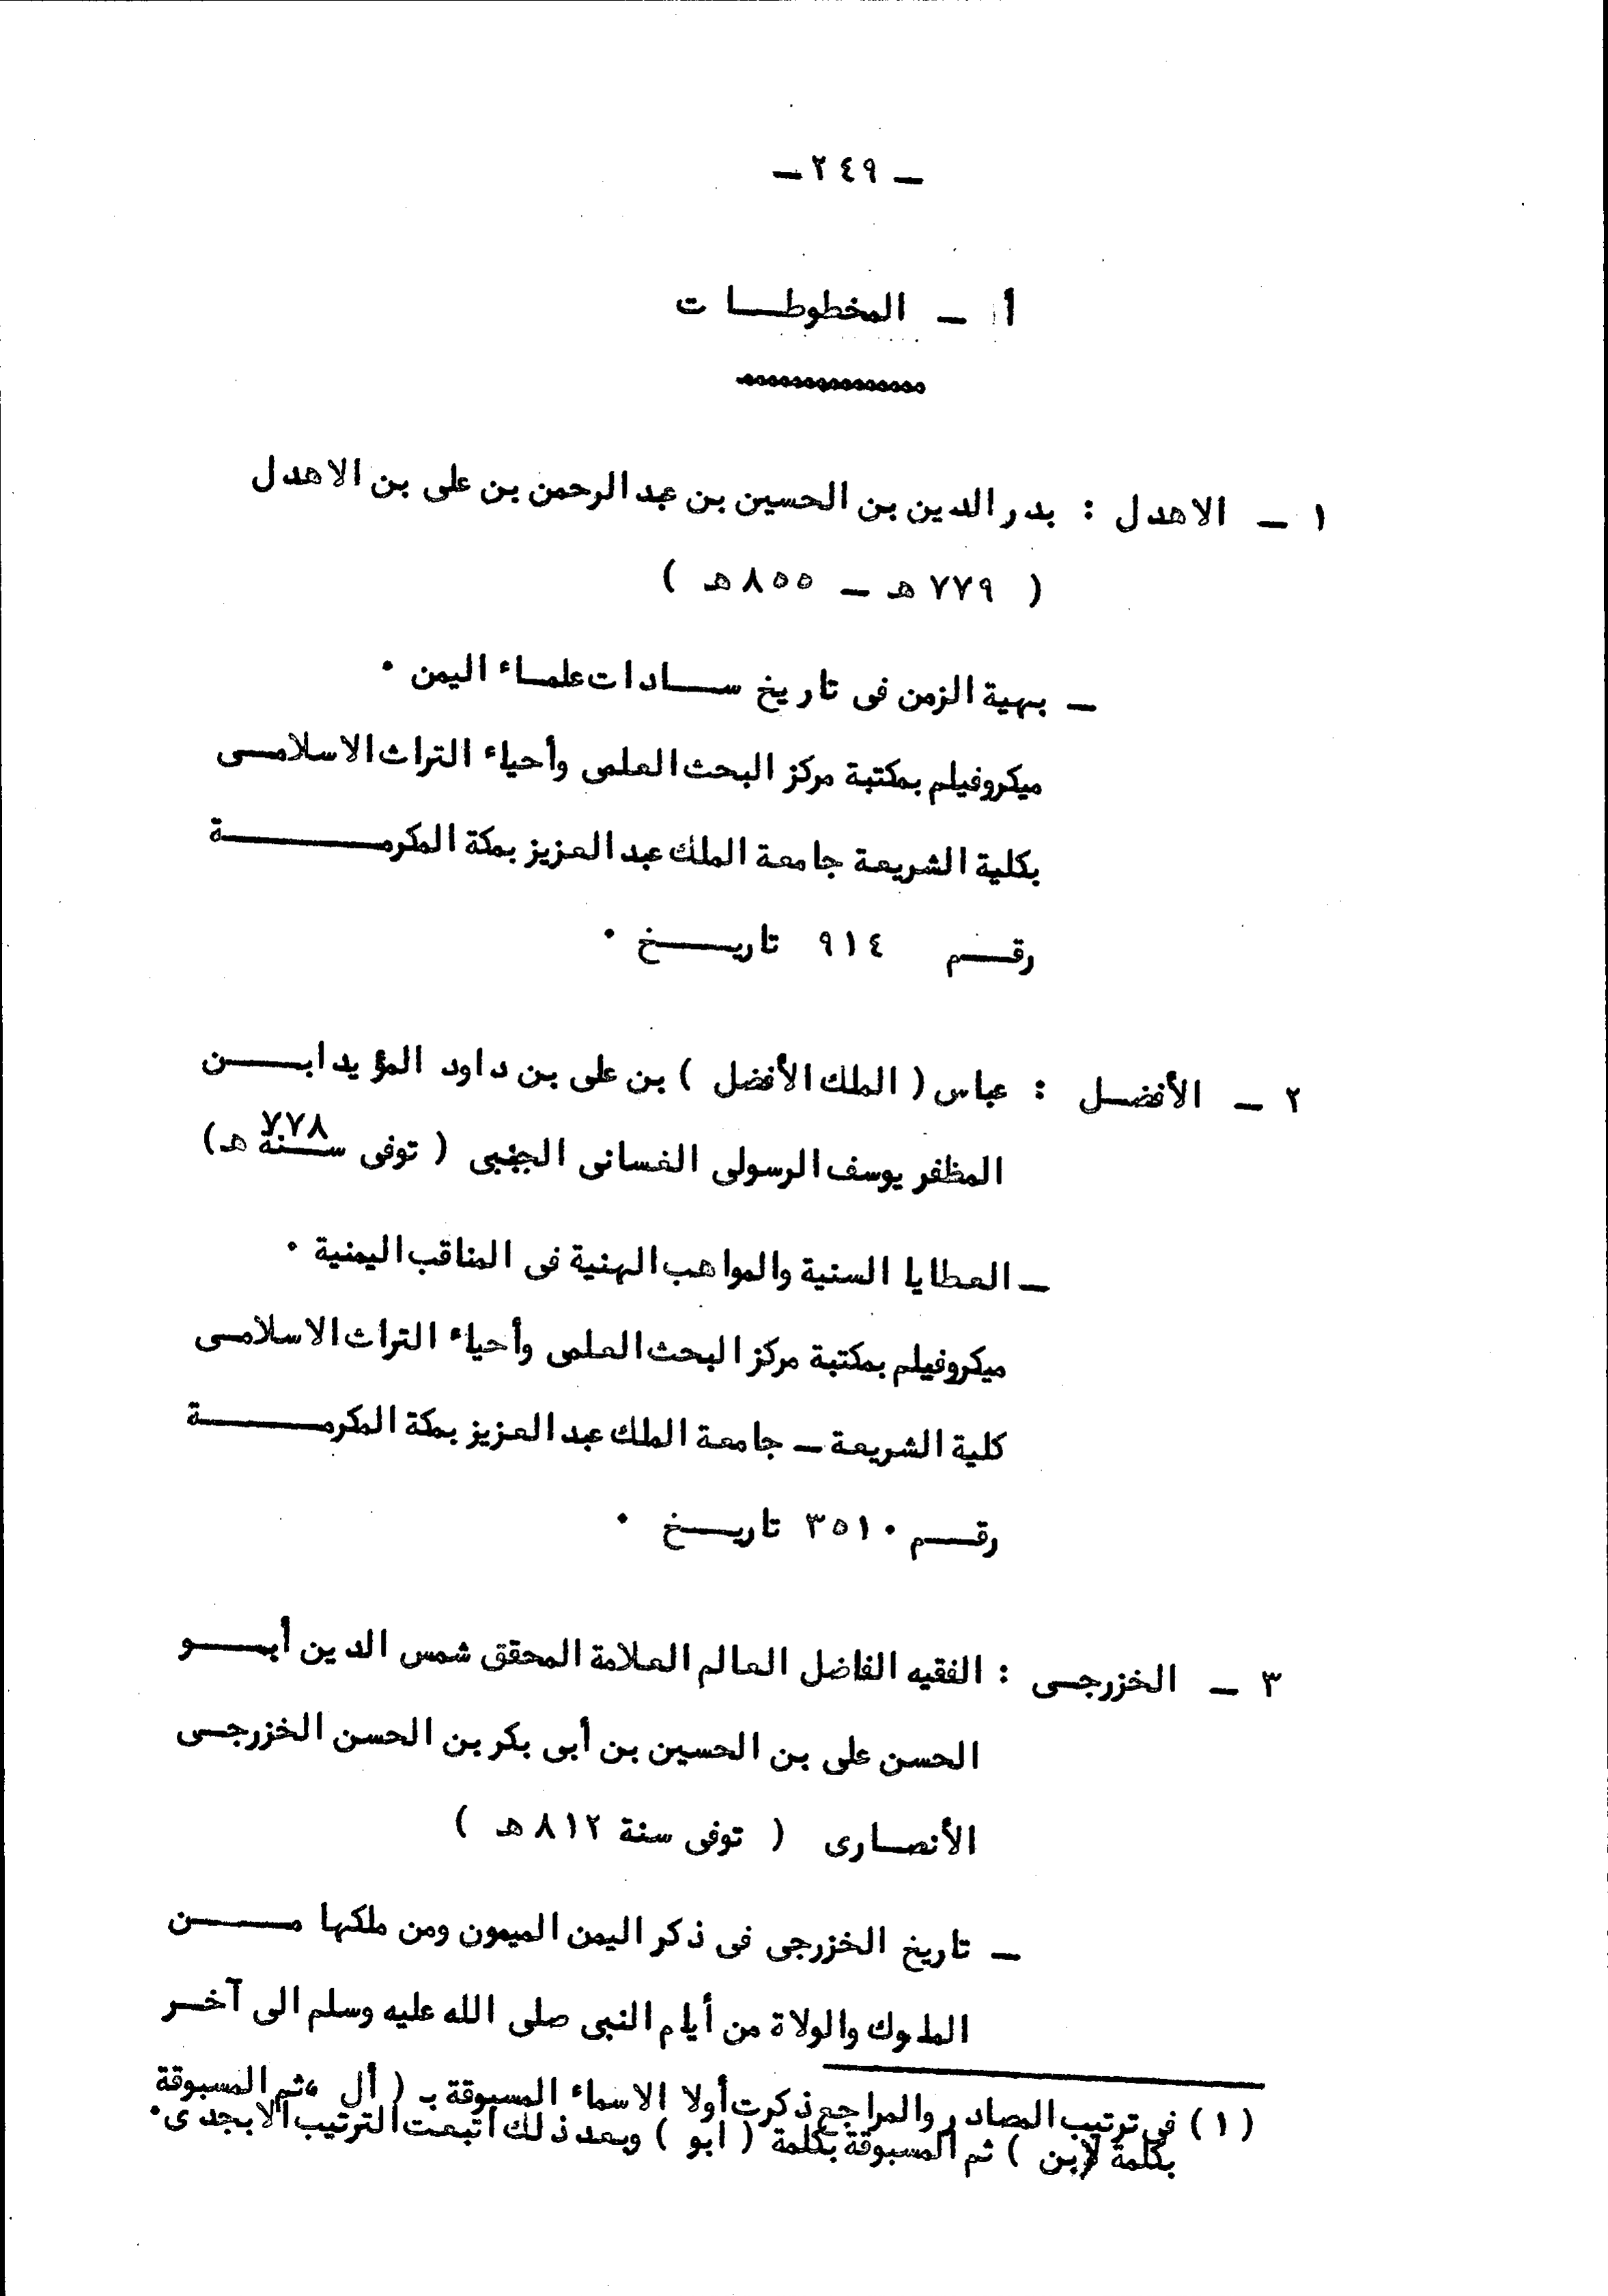 ـ ٢٤٩ ـ
أ ـ المخطوطـــات
١ ـ الاهدل : بدر الدين بن الحسين بن عبد الرحمن بن على بن الاهدل
( ٧٧٩ هـ ـ ٨٥٥ هـ )
ـ بهية الزمن فى تاريخ ســـادات علمـاء اليمن ٠
ميكروفيلم بمكتبة مركز البحث العلمى وأحياء التراث الاسلامـى
بكلية الشريعة جامعة الملك عبد العزيز بمكة المكرمـــــــة
رقــم ٩١٤ تاريـــخ ٠
٢ ـ الأفضـل : عباس ( الملك الأفضل ) بن على بن داود المؤيد ابـــن
المظفر يوسف الرسولى الغسانى الجفنى ( توفى ســنة ٧٧٨ هـ)
ـ العطايا السنية والمواهب الهنية فى المناقب اليمنية ٠
ميكروفيلم بمكتبة مركز البحث العلمى وأحياء التراث الاسلامـى
كلية الشريعة ـ جامعة الملك عبد العزيز بمكة المكرمـــــــة
رقــم ٣٥١٠ تاريـــخ ٠
٣ ـ الخزرجـى : الفقيه الفاضل العالم العلامة المحقق شمس الدين أبــــو
الحسن على بن الحسين بن أبى بكر بن الحسن الخزرجـى
الأنصـارى ( توفى سنة ٨١٢ هـ )
ـ تاريخ الخزرجى فى ذكر اليمن الميمون ومن ملكها مـــــن
الملوك والولاة من أيام النبى صلى الله عليه وسلم الى آخـر
( ١ ) فى ترتيب المصادر والمراجع ذكرت أولا الاسماء المسبوقة بـ ( أل ، ثم المسبوقة
بكلمة ( ابن ) ثم المسبوقة بكلمة ( ابو ) وبعد ذلك اتبعت الترتيب الابجدى٠